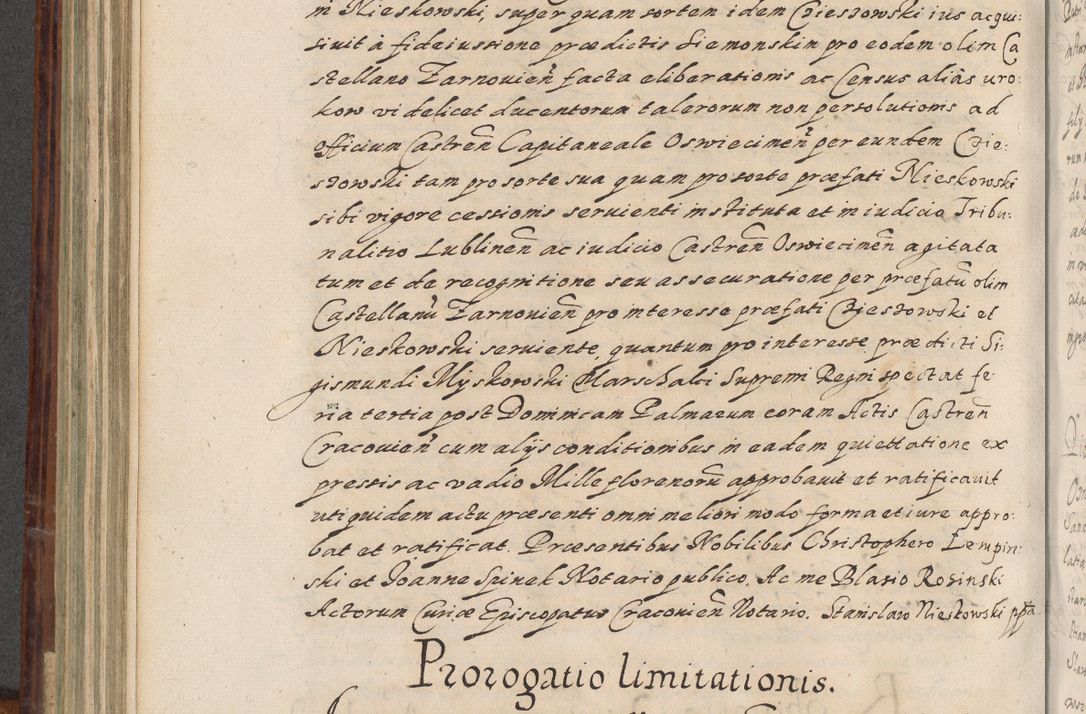 m Nieskowski, super quam sortem idem Czieszowski ius acqui:
siuit à fideiussione prædictis Siemonskin pro eodem olim Ca
stellano Zarnouien̄ facta eliberationis ac Census aliàs uro:
kow videlicet ducentorum talerorum non persolutionis ad
officium Castren̄ Capitaneale Oswiecimen̄ per eundem Czie:
szowski tam pro sorte sua quam pro sorte præfati Nieskowski
sibi vigore cessionis seruienti instituta et in iudicio Tribu:
nalitio Lublinen̄ ac iudicio Castren̄ Oswiecimen̄ agitata
tum et de recognitione seu assecuratione per præfatū olim
Castellanū Zarnouien̄ pro interesse præfati Czieszowski et
Nieskowski seruiente, quantum pro interesse prædicti Si:
gismundi Myskowski Marschalci Supremi Regni spectat fe
ria tertia post Dominicam Palmarum coram Actis Castren̄
Cracouien̄ cum alijs conditionibus in eadem quiettatione ex
pressis ac vadio Mille florenorū approbauit et ratificauit
uti quidem actu præsenti omni meliori modo forma et iure appro:
bat et ratificat. Præsentibus Nobilibus Christophero Lempin:
ski et Joanne Spinek Notario publico, Ac me Blasio Rosinski
Actorum Curiæ Episcopatus Cracouien̄ Notario. Stanislaw Nieskowski ppa
Prorogatio limitationis.